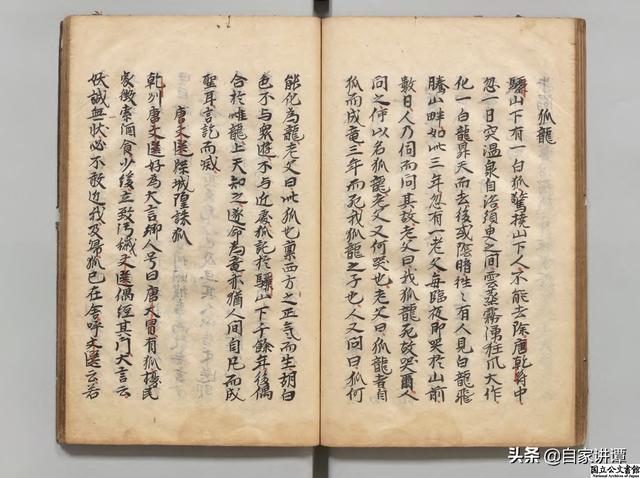 狐龍
驪山下有一白狐驚撓山下人不能去除唐乾符中
忽一日突溫泉自浴須申之間雲蒸霧湧狂爪大作
化一白龍昇天而去後或陰暗往々有人見白龍飛
騰山畔如此三年忽有一老父每臨夜即哭於山前
數日人乃伺而問其故老父曰我狐龍死故哭爾人
問之侍以名狐龍老父又何哭也老父曰狐龍者自
狐而成竜三年而死我狐龍之子也人又問曰狐何
能化為龍老父曰此狐也稟西方之正氣而生胡白
色不与衆遊不与近處狐託於驪山下千餘年後偶
合於雌龍上天知之遂命為竜亦猶人間自凡而成
聖耳言訖而滅
唐文選隍城隍誅狐
乾州唐文選好為大言鄉人号曰唐大冒有狐擾民
家徴索酒食少緩立致污穢文選偶經其門大言云
妖誠無状必不敢近我及帰狐已在舍呼文選云若
头条 @自家讲谭
国立公文書館
National Archives of Japan